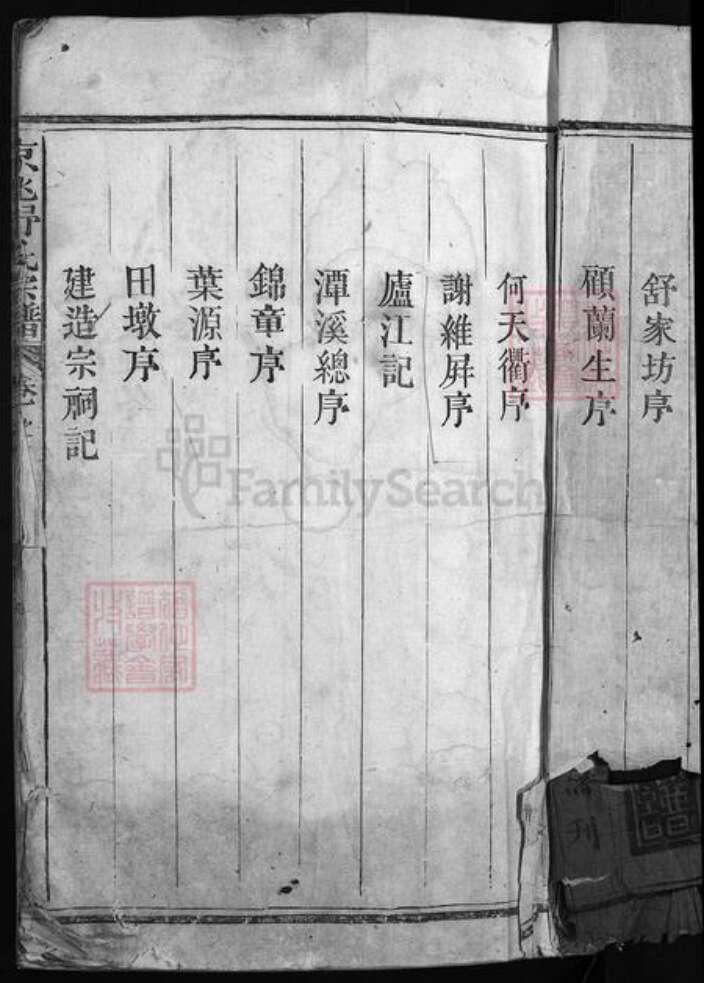 舒家坊序
顧蘭生序
何天衢序
謝維屛序
廬江記
潭溪總序
錦童序
葉源序
田墩序
建造宗祠記
宗譜
卷一
FamilySearch
刊